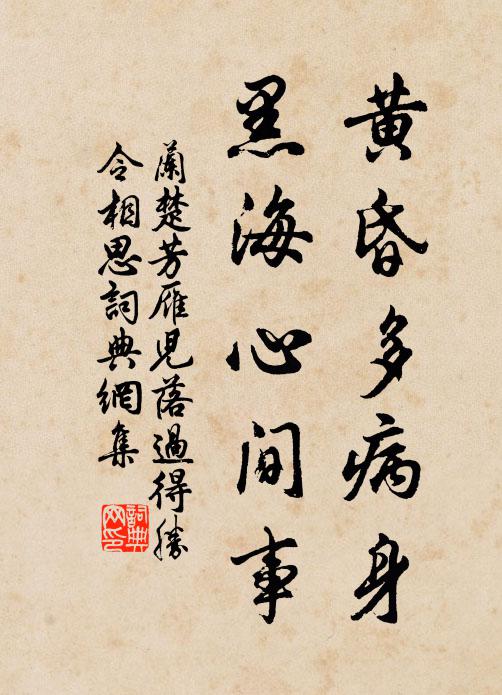 黄昏多病身
黑海心间事
蘭楚芳雁児落過得勝
令相思詞典網集
詞典
网印